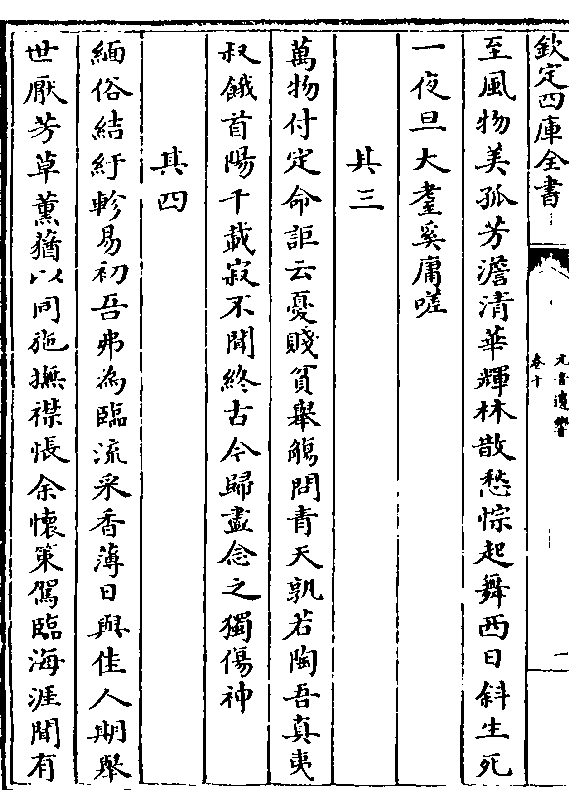 欽定四庫全書
元音遺響
卷十
一
至風物美孤芳澹清華輝林散愁悰起舞西日斜生死
一夜旦大耋奚庸嗟
其三
萬物付定命詎云憂賤貧舉觴問青天孰若陶吾真夷
叔餓首陽千載寂不聞終古今歸盡念之獨傷神
其四
緬俗結紆軫易初吾弗為臨流采香薄日與佳人期舉
世厭芳草薰蕕以同施撫襟悵余懷策駕臨海涯聞有